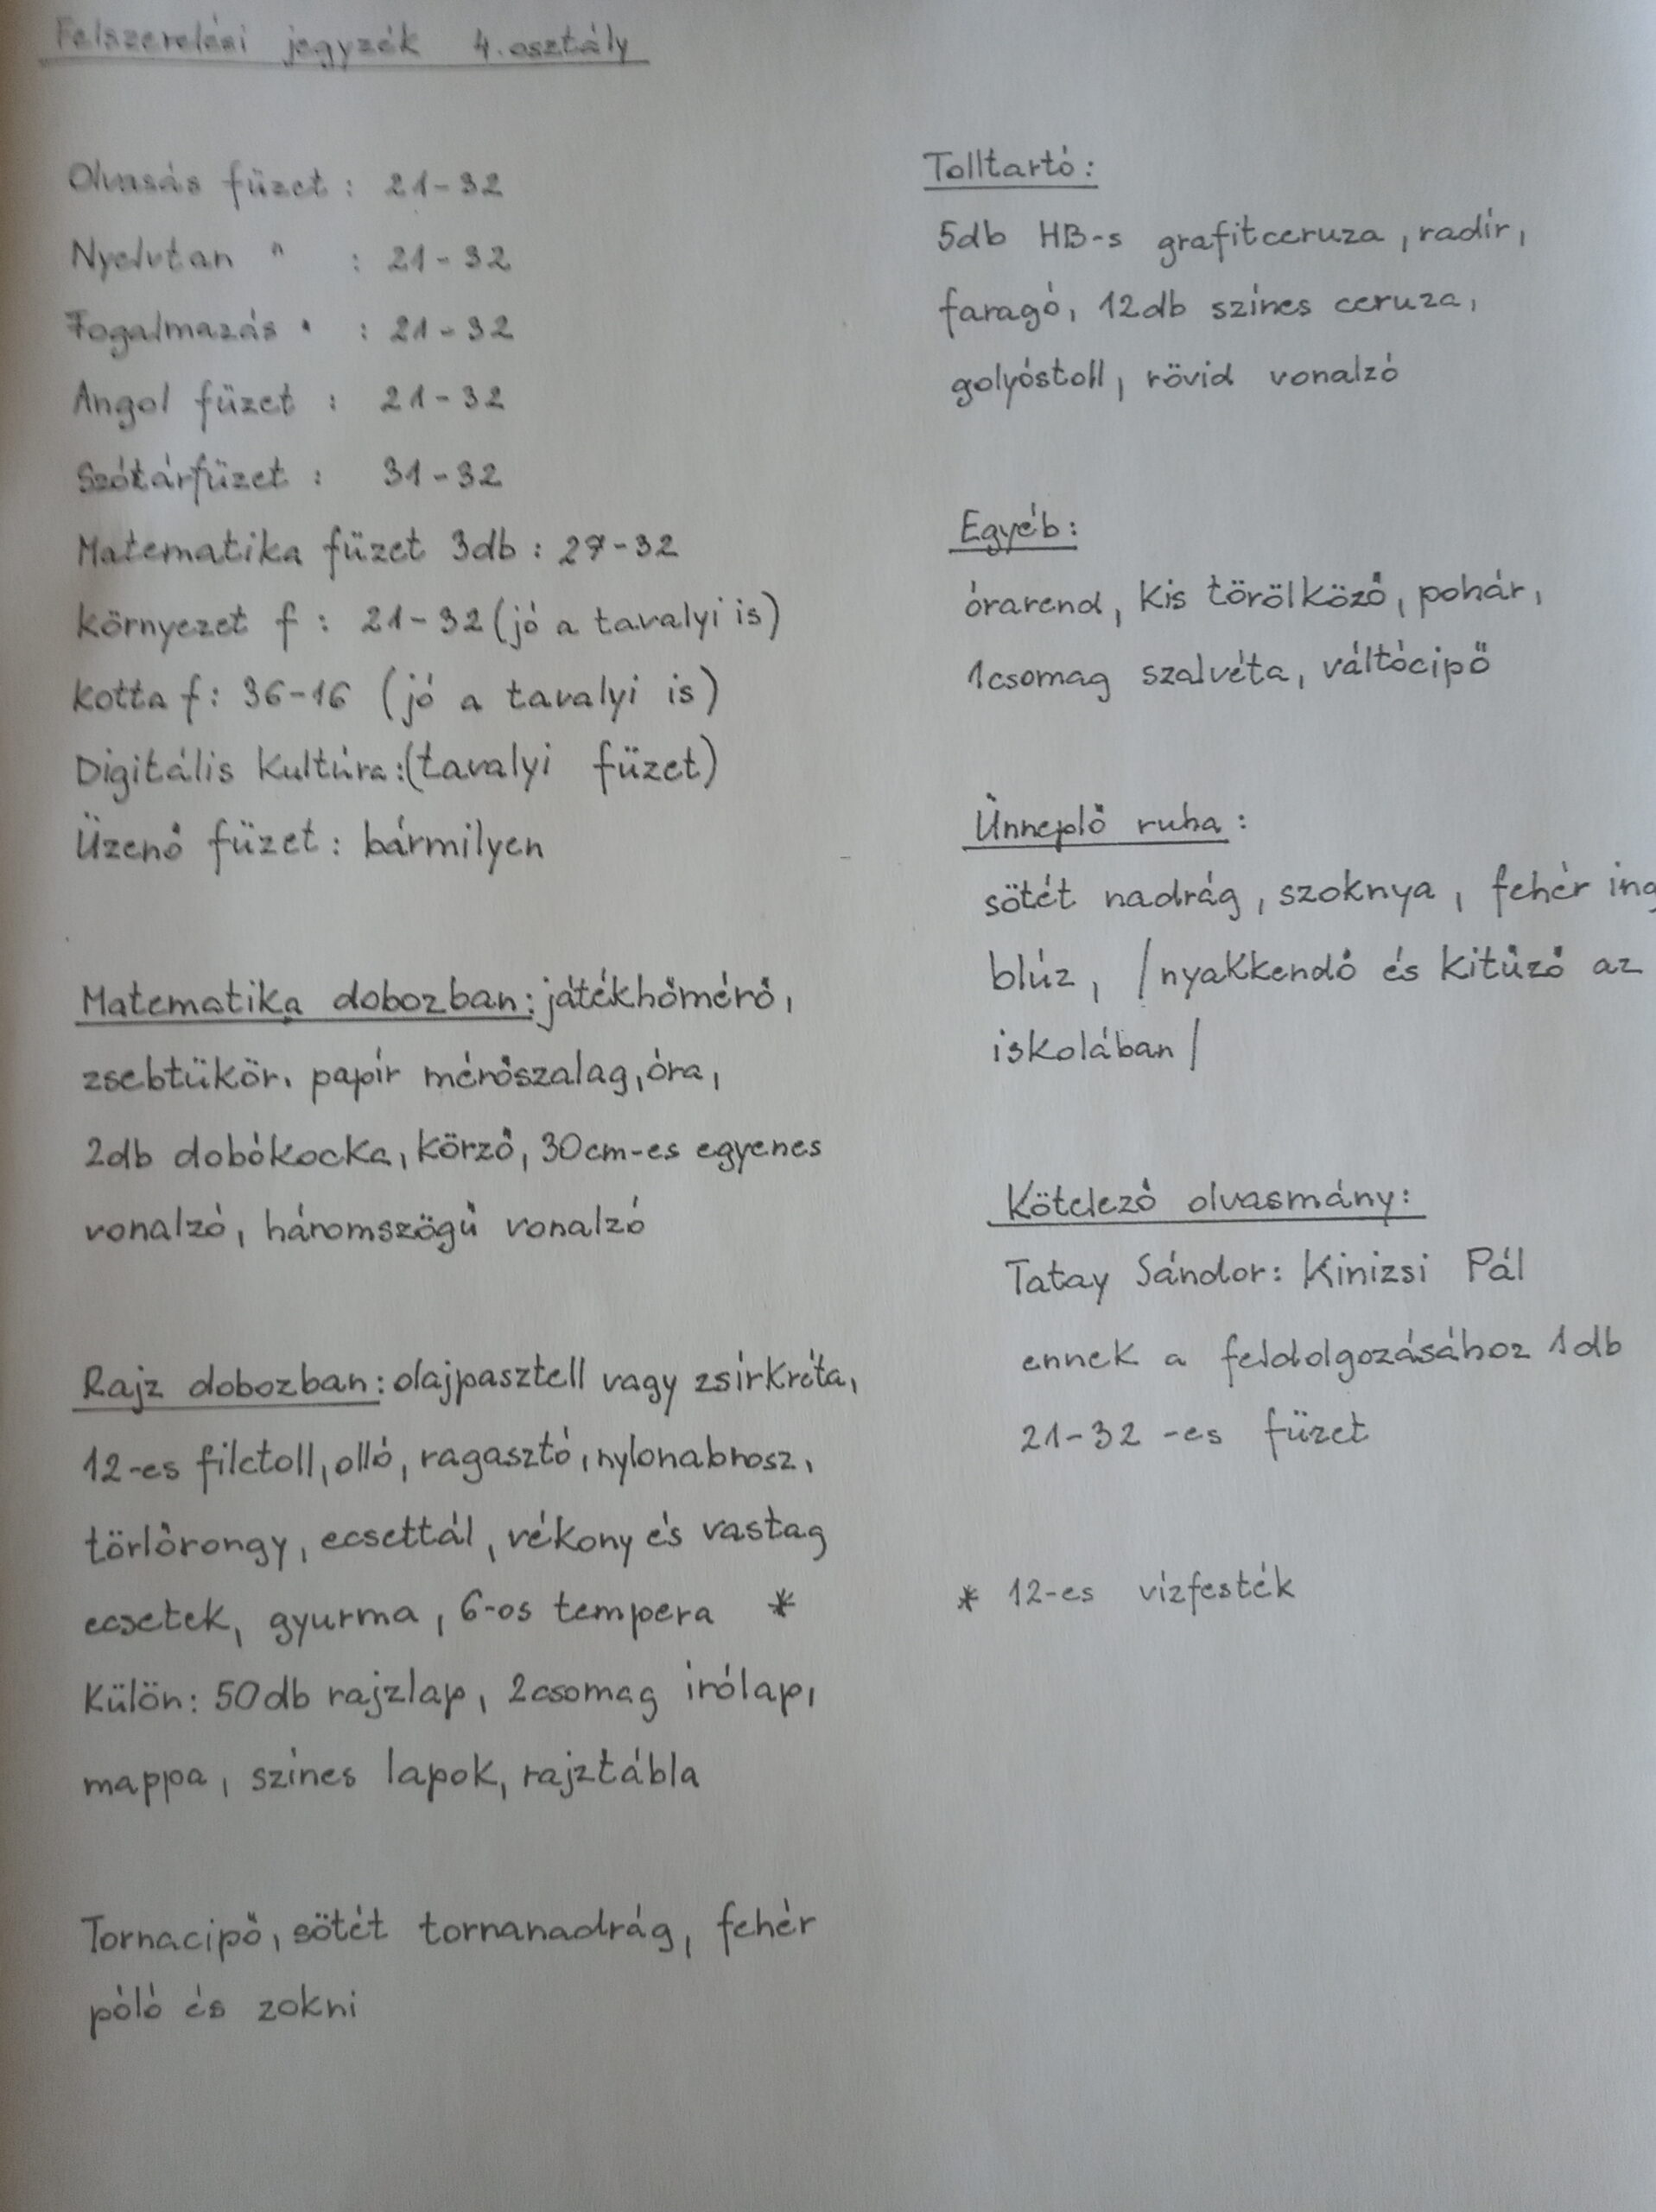 Felszerelési jegyzék 4. osztály
Olvasás füzet : 21-32
Nyelvtan " : 21-32
Fogalmazás " : 21-32
Angol füzet : 21-32
Szótárfüzet : 31-32
Matematika füzet 3db : 27-32
környezet f : 21-32 (jó a tavalyi is)
kotta f: 36-16 (jó a tavalyi is)
Digitális kultúra: (tavalyi füzet)
Üzenő füzet : bármilyen
Matematika dobozban: játékhőmérő,
zsebtükör, papír mérőszalag, óra,
2db dobókocka, körző, 30cm-es egyenes
vonalzó, háromszögű vonalzó
Rajz dobozban: olajpasztell vagy zsírkréta,
12-es filctoll, olló, ragasztó, nylonabrosz,
törlőrongy, ecsettál, vékony és vastag
ecsetek, gyurma, 6-os tempera *
Külön: 50db rajzlap, 2csomag írólap,
mappa, színes lapok, rajztábla
Tornacipő, sötét tornanadrág, fehér
póló és zokni
Tolltartó:
5db HB-s grafitceruza, radír,
faragó, 12db színes ceruza,
golyóstoll, rövid vonalzó
Egyéb:
órarend, kis törölköző, pohár,
1csomag szalvéta, váltócipő
Ünneplő ruha :
sötét nadrág, szoknya, fehér ing
blúz, /nyakkendő és kitűző az
iskolában/
Kötelező olvasmány:
Tatay Sándor: Kinizsi Pál
ennek a feldolgozásához 1db
21-32-es füzet
* 12-es vízfesték